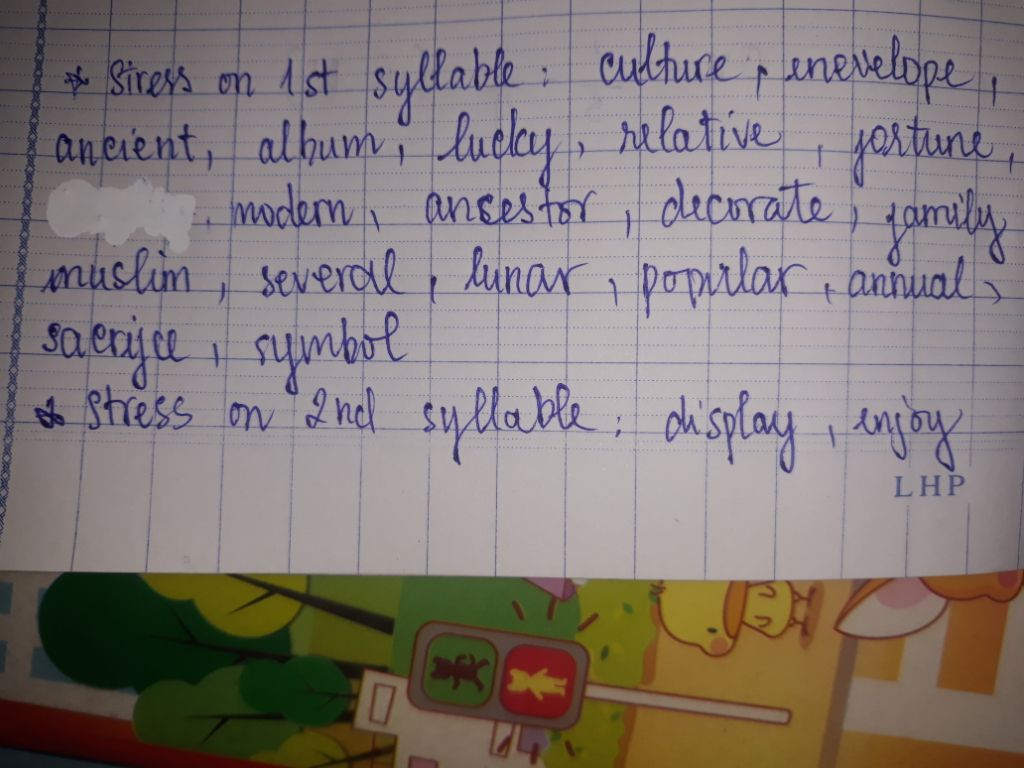 * Stress on 1st syllable : culture , enevelope ,
ancient, album, lucky, relative , fortune,
, modern, ansestor , decorate , family
muslim , several , lunar , popular , annual ,
sacrifce , symbol
* Stress on 2nd syllable : display , enjoy
LHP